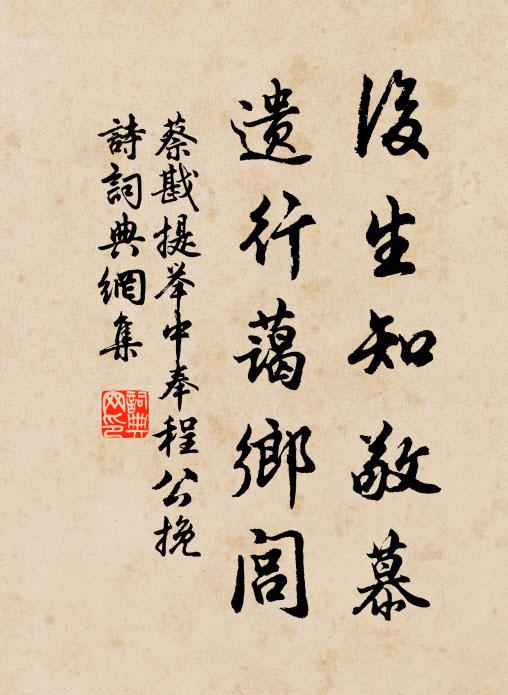 後生知敬慕
遗行蔼鄉閭
蔡戡提举中奉程公挽
詩詞典網集
詞典网印